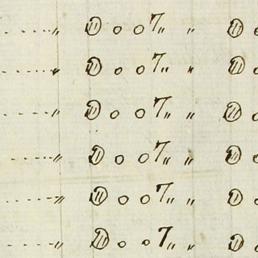 .....,, Ⓓ o o 7,, ,, Ⓓ o
.....,, Ⓓ o o 7,, ,, Ⓓ o
.....,, Ⓓ o o 7,, ,, Ⓓ o
.....,, Ⓓ o o 7,, ,, Ⓓ o
.....,, Ⓓ o o 7,, ,, Ⓓ o
.....,, Ⓓ o o 7,, ,, Ⓓ o